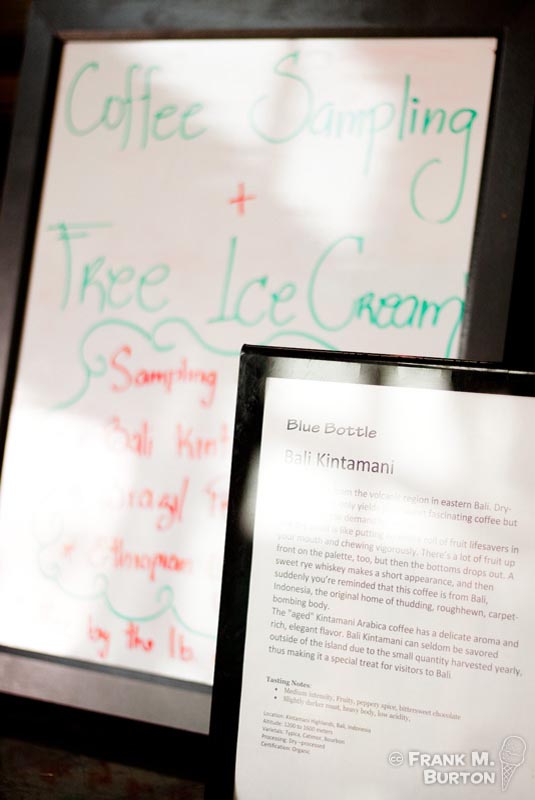 Coffee Sampling
+
Free Ice Cream
Sampling
Bali
by the lb.
Blue Bottle
Bali Kintamani
the volcanic region in eastern Bali. Dry-
fascinating coffee but
is like putting roll of fruit lifesavers in
your mouth and chewing vigorously. There's a lot of fruit up
front on the palette, too, but then the bottoms drops out. A
sweet rye whiskey makes a short appearance, and then
suddenly you're reminded that this coffee is from Bali,
Indonesia, the original home of thudding, roughhewn, carpet-
bombing body.
The "aged" Kintamani Arabica coffee has a delicate aroma and
rich, elegant flavor. Bali Kintamani can seldom be savored
outside of the island due to the small quantity harvested yearly,
thus making it a special treat for visitors to Bali
Tasting Notes:
• Medium intensity, Fruity, peppery spice, bittersweet chocolate
• Slightly darker roast, heavy body, low acidity,
Location: Kintamani Highlands, Bali, Indonesia
Altitude: 1200 to 1600 meters
Varietals: Typica, Catimor, Bourbon
Processing: Dry-processed
Certification: Organic
cc Frank M.
Burton